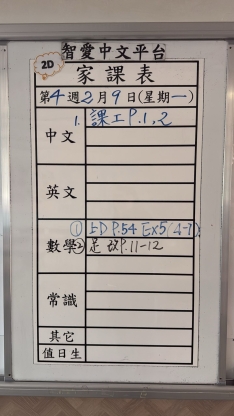 2D
智愛中文平台
家課表
第4週2月9日(星期一)
中文 1. 課工P.1,2
英文
數學 ① 上D P.54 Ex5(4-7)
② 是 改P.11-12
常識
其它
值日生